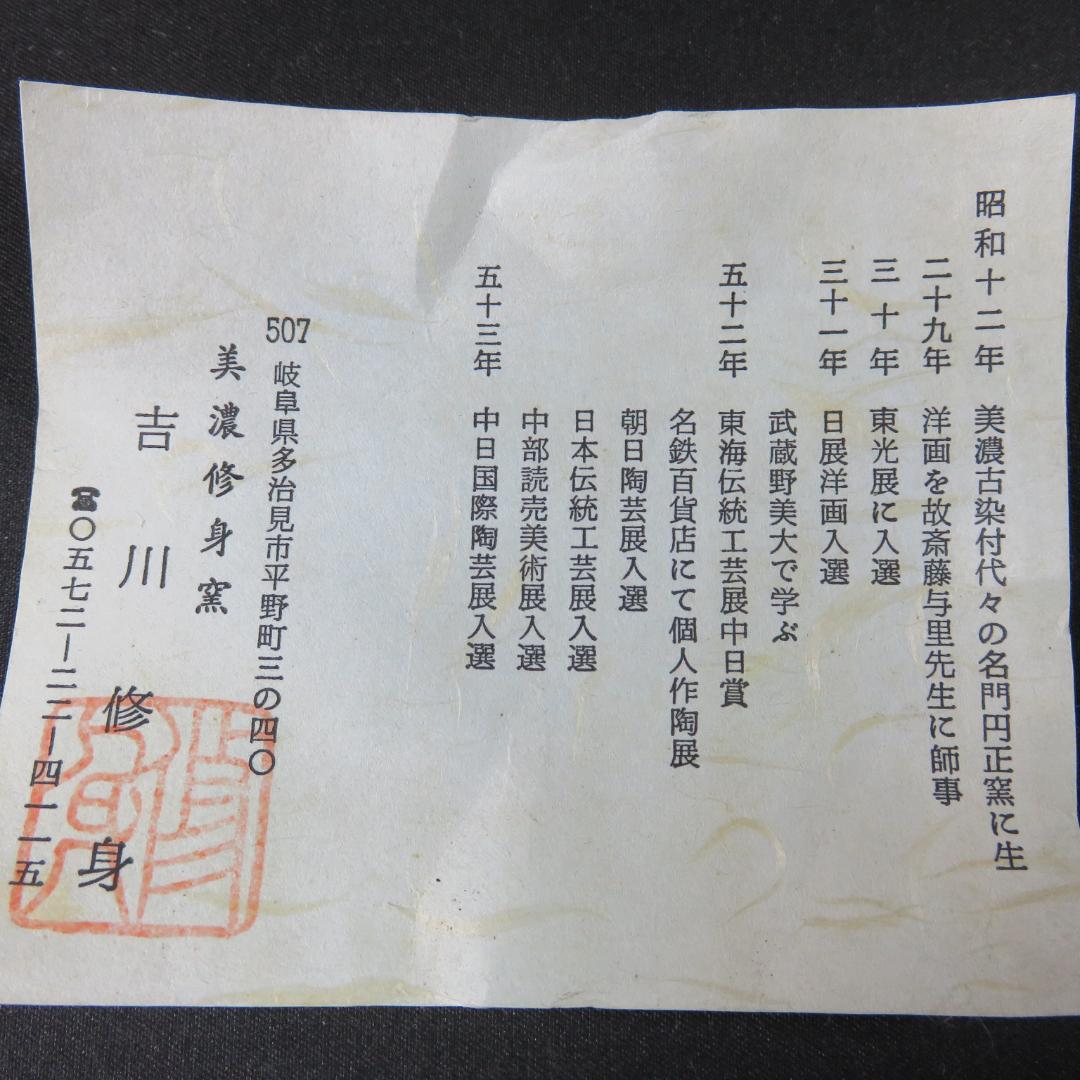 昭和十二年 美濃古染付代々の名門円正窯に生
二十九年 洋画を故斎藤与里先生に師事
三十年 東光展に入選
三十一年 日展洋画入選
武蔵野美大で学ぶ
五十二年 東海伝統工芸展中日賞
名鉄百貨店にて個人作陶展
朝日陶芸展入選
日本伝統工芸展入選
中部読売美術展入選
五十三年 中日国際陶芸展入選
507 岐阜県多治見市平野町三の四〇
美濃修身窯
吉川修身
☎〇五七二ー二二ー四一一五
修身